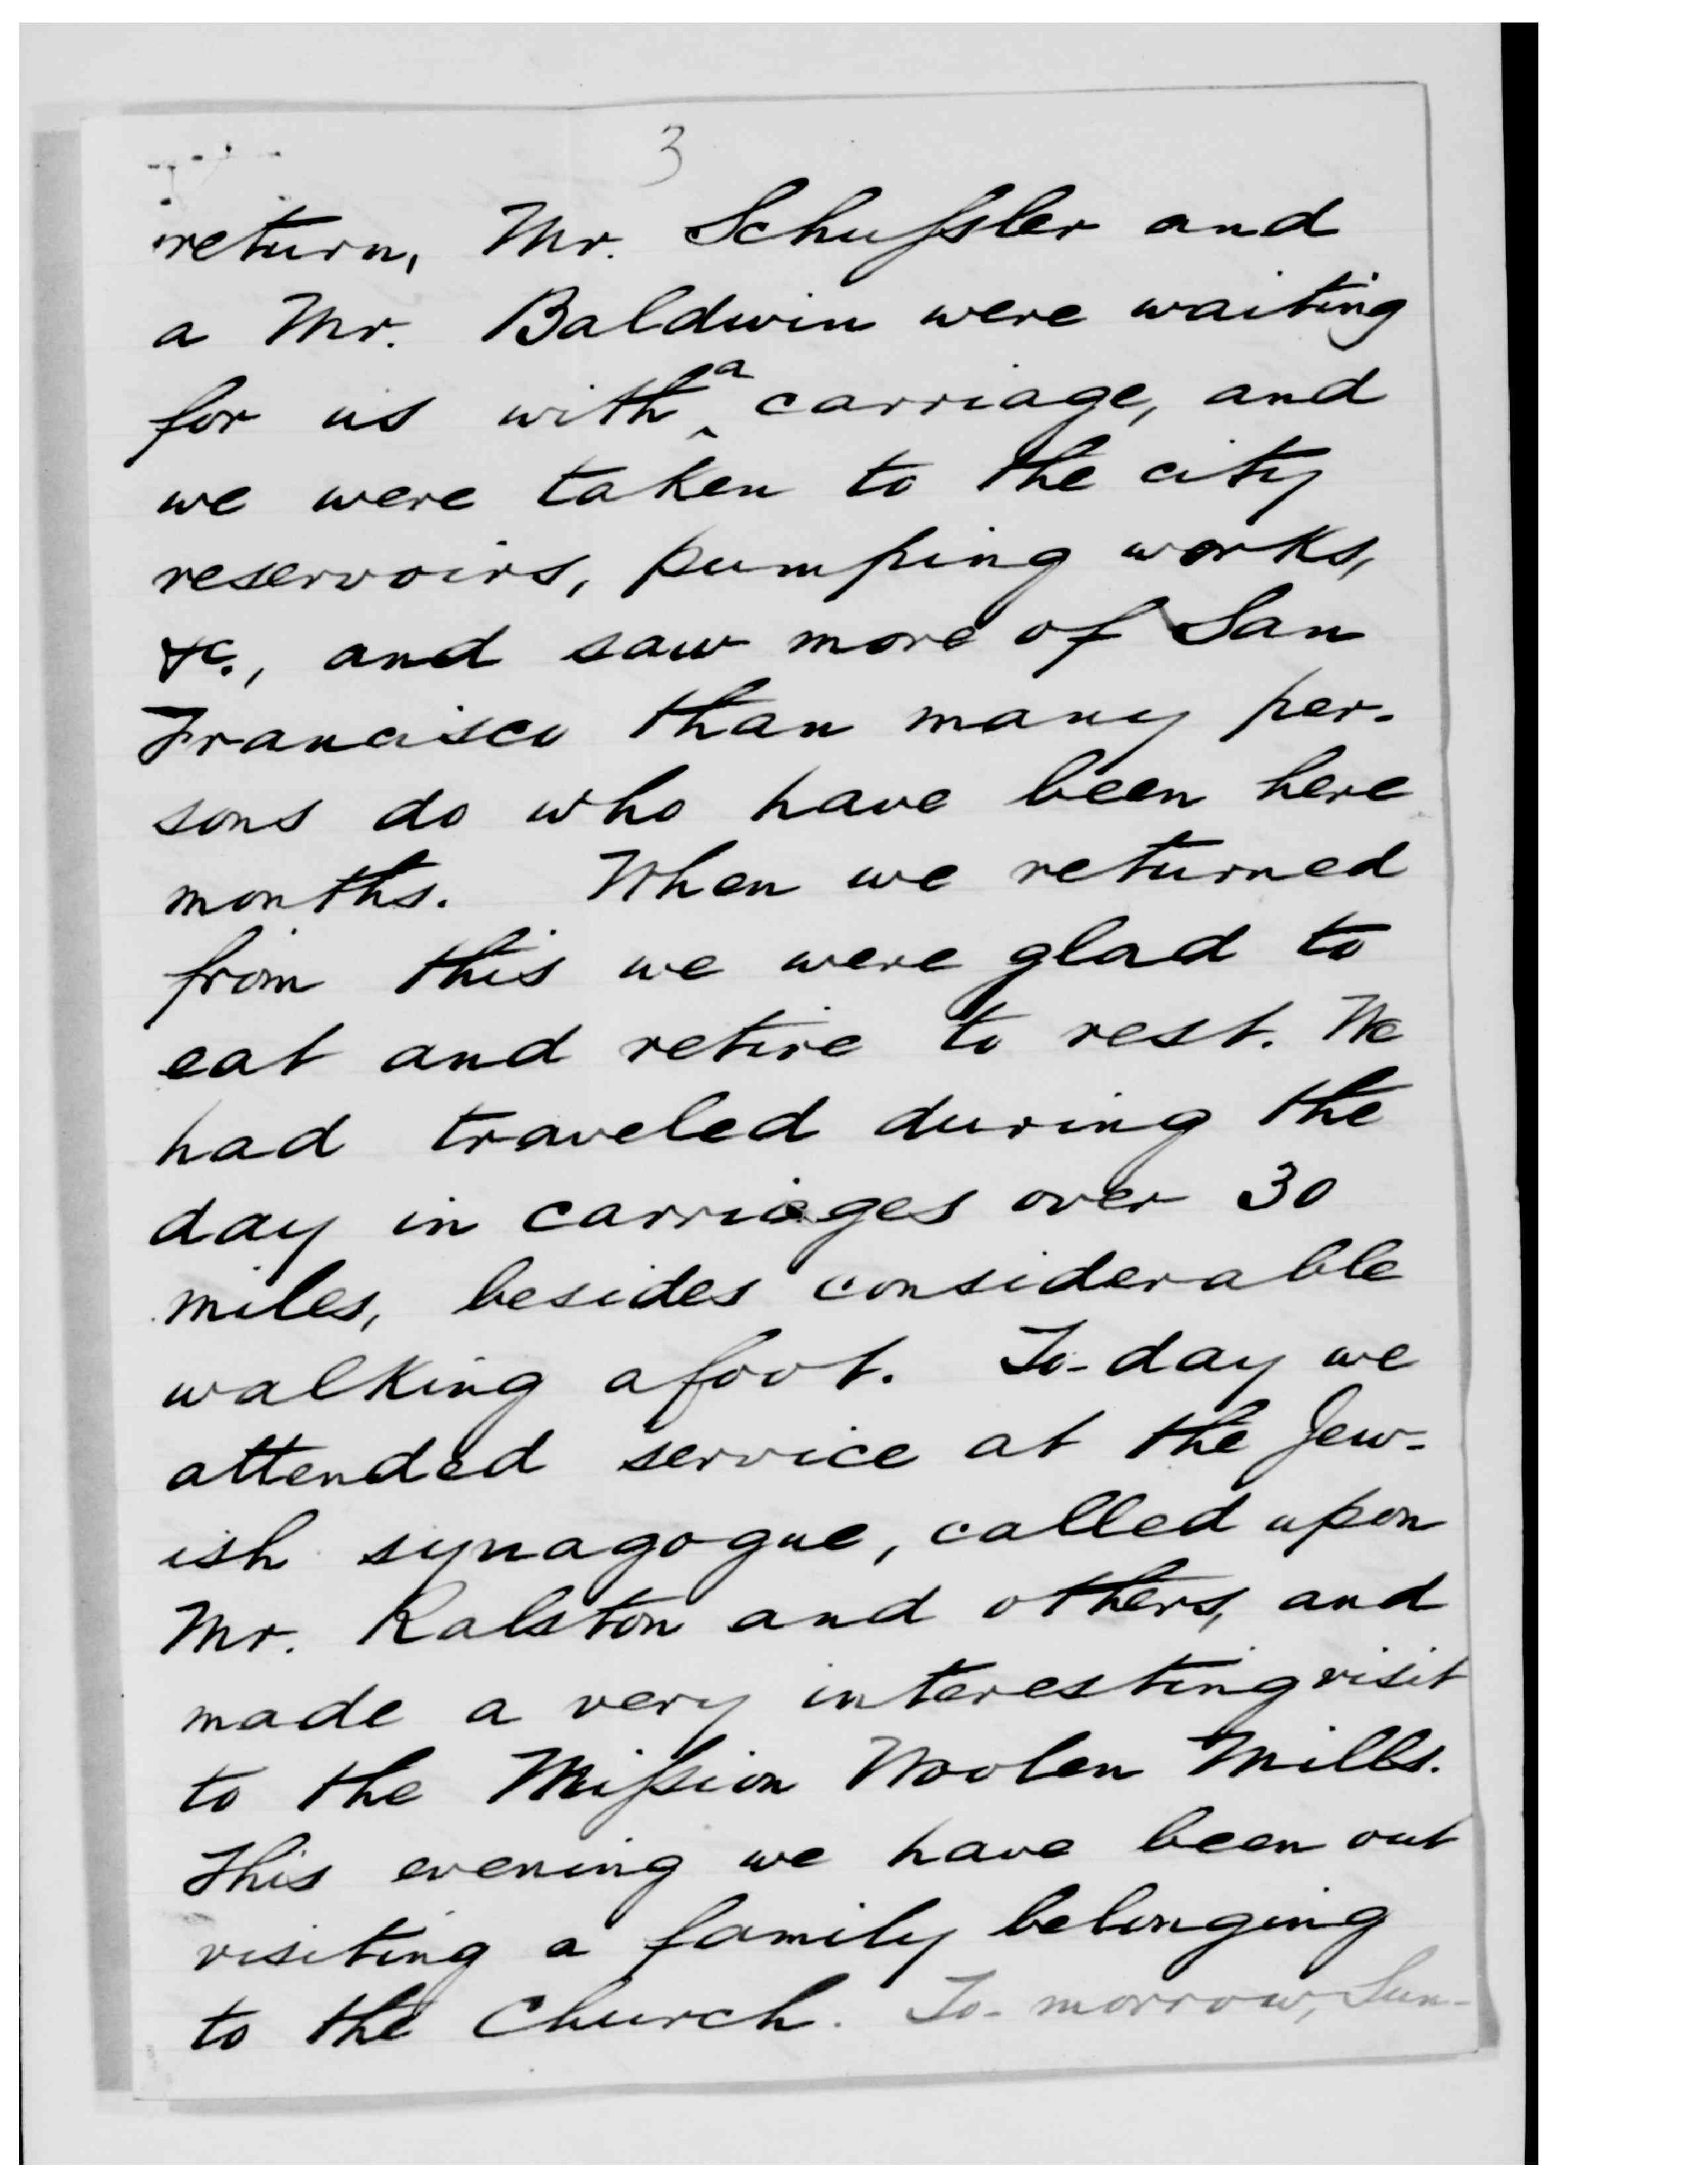 3
return, Mr. Schussler and
a Mr. Baldwin were waiting
for us with ^a carriage, and
we were taken to the city
reservoirs, pumping works,
&c., and saw more of San
Francisco than many per-
sons do who have been here
months. When we returned
from this we were glad to
eat and retire to rest. We
had traveled during the
day in carriages over 30
miles, besides considerable
walking afoot. To-day we
attended service at the Jew-
ish synagogue, called upon
Mr. Ralston and others, and
made a very interesting visit
to the Mission Woolen Mills.
This evening we have been out
visiting a family belonging
to the Church. To-morrow, Sun-